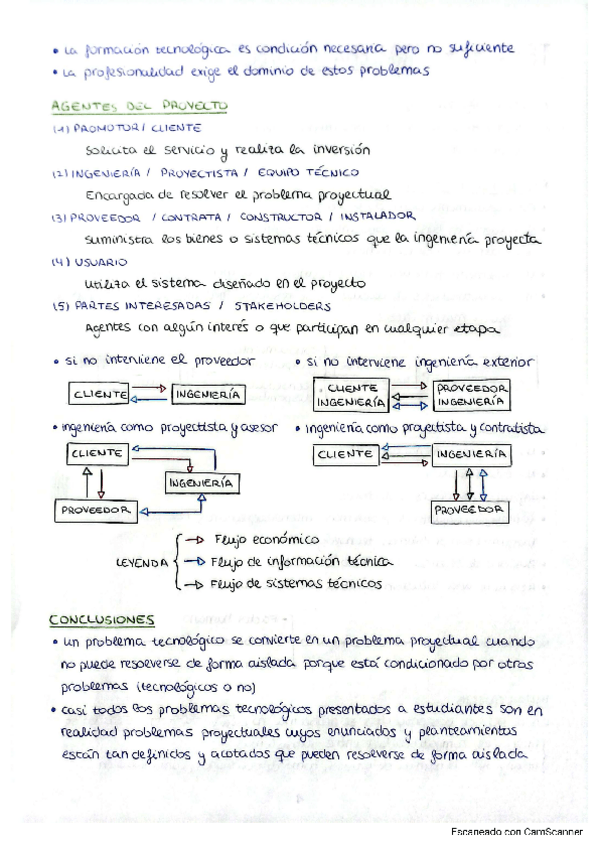 • La formación tecnológica es condición necesaria pero no suficiente
• La profesionalidad exige el dominio de estos problemas
AGENTES DEL PROYECTO
(1) PROMOTOR / CLIENTE
Solicita el servicio y realiza la inversión
(2) INGENIERÍA / PROYECTISTA / EQUIPO TÉCNICO
Encargada de resolver el problema proyectual
(3) PROVEEDOR / CONTRATA / CONSTRUCTOR / INSTALADOR
Suministra los bienes o sistemas técnicos que la ingeniería proyecta
(4) USUARIO
Utiliza el sistema diseñado en el proyecto
(5) PARTES INTERESADAS / STAKEHOLDERS
Agentes con algún interés o que participan en cualquier etapa
• si no interviene el proveedor
CLIENTE
INGENIERÍA
• si no interviene ingeniería exterior
CLIENTE
INGENIERÍA
PROVEEDOR
INGENIERÍA
• ingeniería como proyectista y asesor
CLIENTE
INGENIERÍA
PROVEEDOR
• ingeniería como proyectista y contratista
CLIENTE
INGENIERÍA
PROVEEDOR
LEYENDA
Flujo económico
Flujo de información técnica
Flujo de sistemas técnicos
CONCLUSIONES
• un problema tecnológico se convierte en un problema proyectual cuando
no puede resolverse de forma aislada porque está condicionado por otros
problemas (tecnológicos o no)
• casi todos los problemas tecnológicos presentados a estudiantes son en
realidad problemas proyectuales cuyos enunciados y planteamientos
están tan definidos y acotados que pueden resolverse de forma aislada
Escaneado con CamScanner